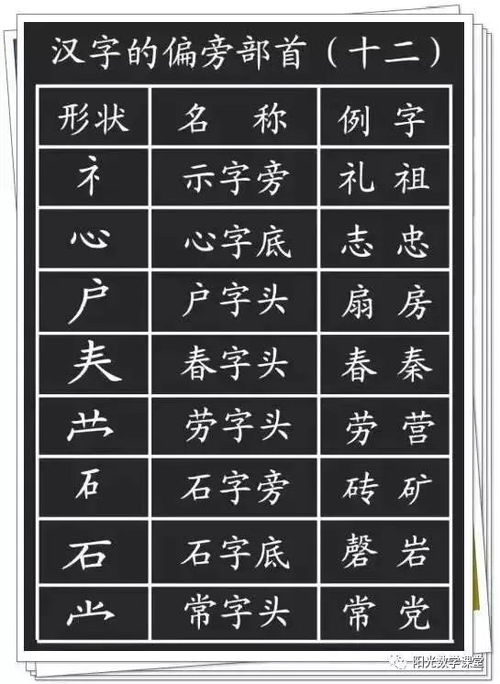 汉字的偏旁部首（十二）
形状 名称 例字
礻 示字旁 礼祖
心 心字底 志忠
户 户字头 扇房
𡗗 春字头 春秦
龷 劳字头 劳营
石 石字旁 砖矿
石 石字底 磬岩
⺌ 常字头 常党
阳光数学课堂